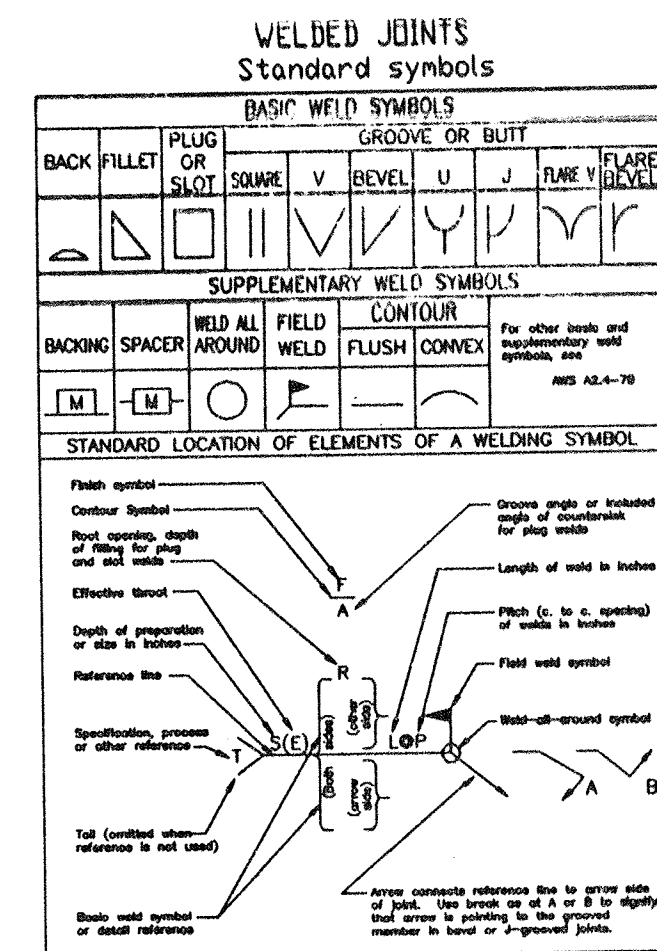 WELDED JOINTS
Standard symbols
BASIC WELD SYMBOLS
BACK
FILLET
PLUG
OR
SLOT
GROOVE OR BUTT
SQUARE
V
BEVEL
U
J
FLARE V
FLARE
BEVEL
SUPPLEMENTARY WELD SYMBOLS
BACKING
SPACER
WELD ALL
AROUND
FIELD
WELD
CONTOUR
FLUSH
CONVEX
For other basic and
supplementary weld
symbols, see
AWS A2.4-79
M
M
STANDARD LOCATION OF ELEMENTS OF A WELDING SYMBOL
Finish symbol
Contour Symbol
Root opening, depth
of filling for plug
and slot welds
Effective throat
Depth of preparation
or size in inches
Reference line
Specification, process
or other reference
Tail (omitted when
reference is not used)
Basic weld symbol
or detail reference
F
A
R
S(E)
T
(Both
sides)
(other
side)
(arrow
side)
L@P
Groove angle or included
angle of countersink
for plug welds
Length of weld in inches
Pitch (c. to c. spacing)
of welds in inches
Field weld symbol
Weld-all-around symbol
A
B
Arrow connects reference line to arrow side
of joint. Use break as at A or B to signify
that arrow is pointing to the grooved
member in bevel or J-grooved joints.